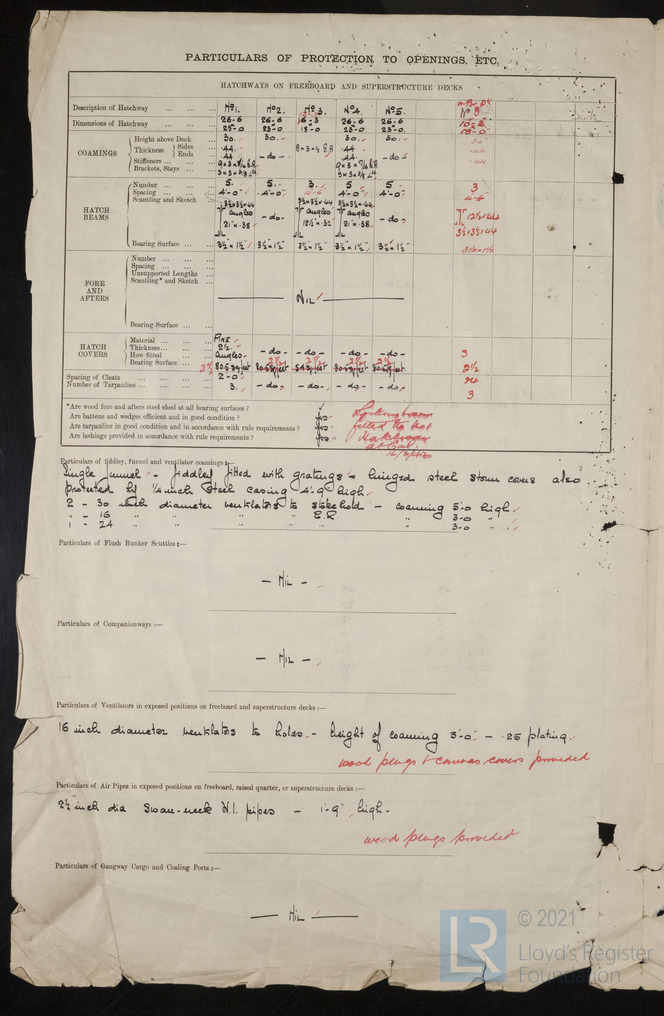 PARTICULARS OF PROTECTION TO OPENINGS, ETC.
HATCHWAYS ON FREEBOARD AND SUPERSTRUCTURE DECKS
Description of Hatchway ... ... ... No 1. No 2. No 3. No 4. No 5. No 3
Dimensions of Hatchway ... ... ... 26-6 26-6 16-3 26-6 26-6
23-0 23-0 18-0 23-0 23-0 18-0
COAMINGS
Height above Deck ... 30. 30. 30. 30
Thickness Sides ... .44 .44 .44
Ends ... .44 -do- .44 -do-
Stiffeners ... ...
Brackets, Stays ... ...
HATCH BEAMS
Number ... ... ... 5. 5. 3. 5 5. 3
Spacing ... ... ... 4'-0" 4'-0" 4-6 4'-0" 4'-0" 4-6
Scantling and Sketch 3½x3½x.44 3½x3½x.44 3½x3½x.44
angles -do- angles angles -do- 12½x.44
21"x.38 12½"x.32 21"x.38 3½x3½x.44
Bearing Surface ... ... 3½"x1½" 3½"x1½" 3½"x1½" 3½"x1½" 3½"x1½" 3½x1½
FORE AND AFTERS
Number ... ... ...
Spacing ... ... ...
Unsupported Lengths ...
Scantling* and Sketch ... Nil
Bearing Surface ... ...
HATCH COVERS
Material ... ... ... Pine
Thickness ... ... ... 2½. -do- -do- -do- -do- 3
How fitted ... ... Angles
Bearing Surface ... ... 2½ 2½ 2½ 2½ 2½ 2½
Spacing of Cleats ... ... ... 2-0 24
Number of Tarpaulins ... ... ... 3. -do- -do- -do- -do- 3
*Are wood fore and afters steel shod at all bearing surfaces ?
Are battens and wedges efficient and in good condition ? Yes
Are tarpaulins in good condition and in accordance with rule requirements ? Yes
Are lashings provided in accordance with rule requirements ? Yes
fitted to
Particulars of fiddley, funnel and ventilator coamings :—
Single funnel - fiddley fitted with gratings & hinged steel storm covers also
protected by ¼ inch steel casing 4'-9 high.
2 - 30 inch diameter ventilators to stokehold - coaming 5-0 high.
1 - 16 " " " " E.R " 3-0 "
1 - 24 " " " " " 3-0 "
Particulars of Flush Bunker Scuttles :—
- Nil -
Particulars of Companionways :—
- Nil -
Particulars of Ventilators in exposed positions on freeboard and superstructure decks :—
16 inch diameter ventilators to holds - height of coaming 3'-0" - .25 plating.
wood plugs & canvas covers provided
Particulars of Air Pipes in exposed positions on freeboard, raised quarter, or superstructure decks :—
2½ inch dia Swan-neck W.I. pipes - 1'-9" high -
wood plugs provided
Particulars of Gangway Cargo and Coaling Ports :—
- Nil -
LR
© 2021
Lloyd's Register
Foundation